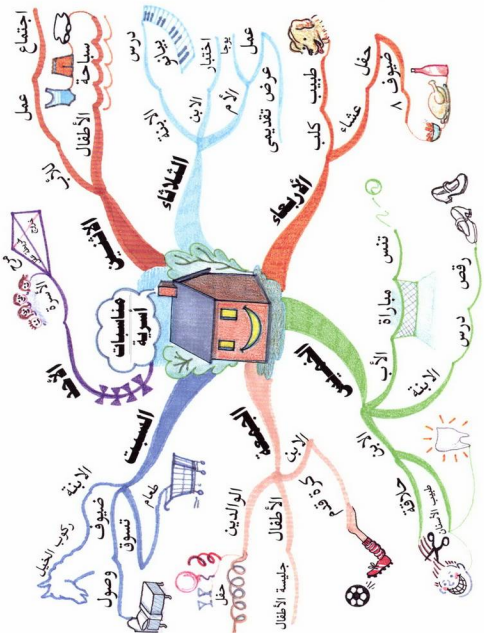 مناسبات
أسرية
الأحد
الأسرة
الاثنين
عمل
اجتماع
الأطفال
سباحة
الثلاثاء
الابنة
درس
بيانو
الابن
اختبار
الأم
عرض تقديمى
عمل
الأربعاء
كلب
طبيب
عشاء
حفل
ضيوف
٨
الخميس
الأب
مباراة
تنس
الابنة
درس
رقص
الابن
حلاقة
طبيب الأسنان
الجمعة
الابن
كرة قدم
الأطفال
جليسة الأطفال
الوالدين
حفل
السبت
تسوق
طعام
ضيوف
وصول
الابنة
ركوب الخيل